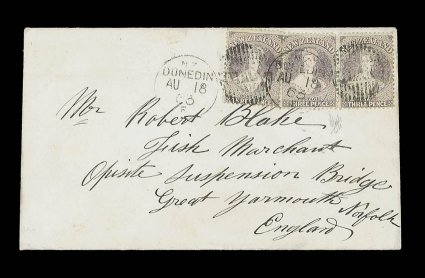 NEW ZEALAND NEW ZEALAND NEW ZEALAND
THREE PENCE THREE PENCE THREE PENCE
N.Z
DUNEDIN
AU 18
63
DUNEDIN
AU 18
63
Mr Robert Blake
Fish Merchant
Opisite Suspension Bridge
Great Yarmouth
Norfolk
England